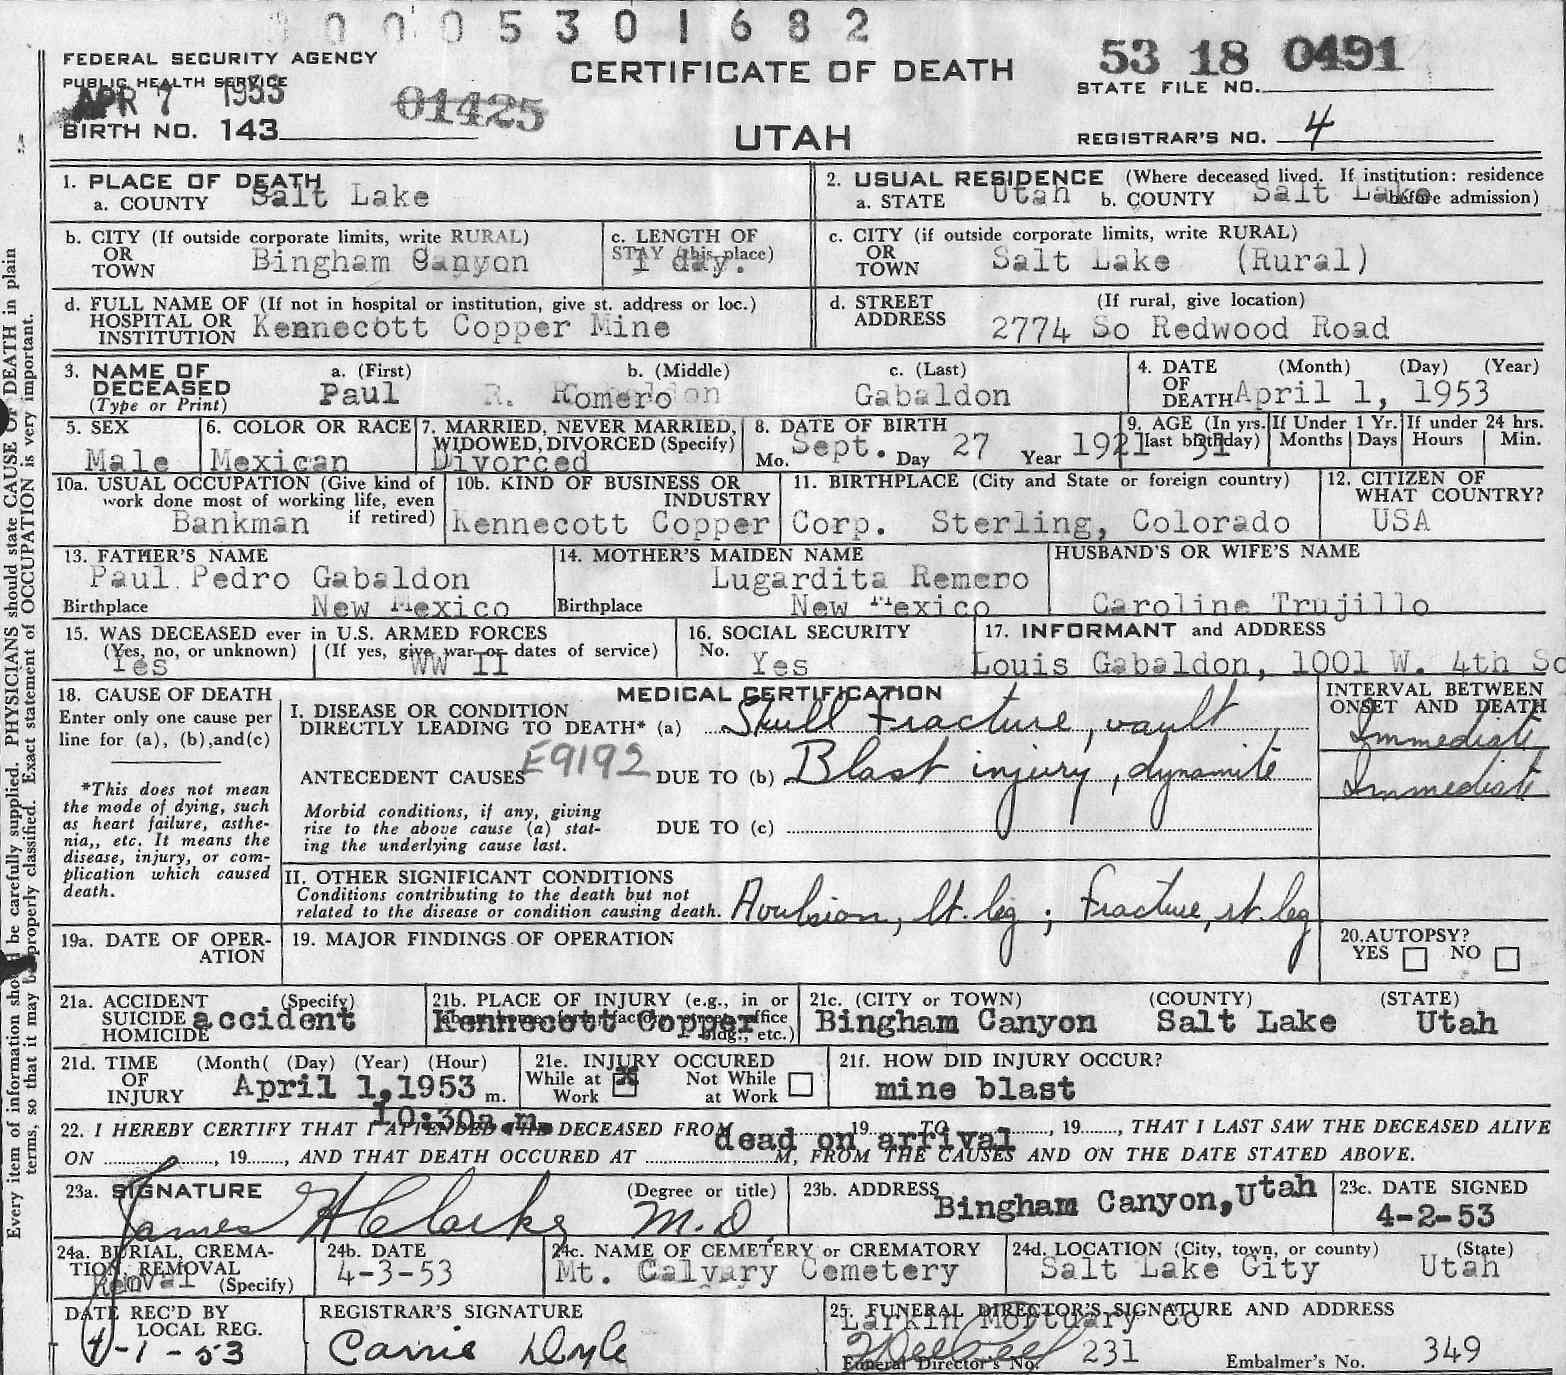 0 0 0 5 3 0 1 6 8 2
FEDERAL SECURITY AGENCY
PUBLIC HEALTH SERVICE
APR 7 1953
01425
BIRTH NO. 143
CERTIFICATE OF DEATH
UTAH
53 18 0491
STATE FILE NO.
REGISTRAR'S NO. 4
1. PLACE OF DEATH
a. COUNTY Salt Lake
2. USUAL RESIDENCE (Where deceased lived. If institution: residence before admission)
a. STATE Utah b. COUNTY Salt Lake
b. CITY (If outside corporate limits, write RURAL)
OR TOWN Bingham Canyon
c. LENGTH OF STAY (this place)
1 day.
c. CITY (if outside corporate limits, write RURAL)
OR TOWN Salt Lake (Rural)
d. FULL NAME OF (If not in hospital or institution, give st. address or loc.)
HOSPITAL OR INSTITUTION Kennecott Copper Mine
d. STREET ADDRESS (If rural, give location)
2774 So Redwood Road
3. NAME OF DECEASED (Type or Print)
a. (First) b. (Middle) c. (Last)
Paul R. Romero Gabaldon
4. DATE OF DEATH (Month) (Day) (Year)
April 1, 1953
5. SEX
Male
6. COLOR OR RACE
Mexican
7. MARRIED, NEVER MARRIED, WIDOWED, DIVORCED (Specify)
Divorced
8. DATE OF BIRTH
Mo. Sept. Day 27 Year 1921
9. AGE (In yrs. last birthday) 31
If Under 1 Yr. Months Days
If under 24 hrs. Hours Min.
10a. USUAL OCCUPATION (Give kind of work done most of working life, even if retired)
Bankman
10b. KIND OF BUSINESS OR INDUSTRY
Kennecott Copper Corp.
11. BIRTHPLACE (City and State or foreign country)
Sterling, Colorado
12. CITIZEN OF WHAT COUNTRY?
USA
13. FATHER'S NAME
Paul Pedro Gabaldon
Birthplace New Mexico
14. MOTHER'S MAIDEN NAME
Lugardita Remero
Birthplace New Mexico
HUSBAND'S OR WIFE'S NAME
Caroline Trujillo
15. WAS DECEASED ever in U.S. ARMED FORCES
(Yes, no, or unknown) (If yes, give war or dates of service)
Yes WW II
16. SOCIAL SECURITY No.
Yes
17. INFORMANT and ADDRESS
Louis Gabaldon, 1001 W. 4th So
18. CAUSE OF DEATH
Enter only one cause per line for (a), (b),and(c)
*This does not mean the mode of dying, such as heart failure, asthenia,, etc. It means the disease, injury, or complication which caused death.
MEDICAL CERTIFICATION
INTERVAL BETWEEN ONSET AND DEATH
I. DISEASE OR CONDITION DIRECTLY LEADING TO DEATH* (a) Skull Fracture, vault
Immediate
ANTECEDENT CAUSES E9192 DUE TO (b) Blast injury, dynamite
Immediate
Morbid conditions, if any, giving rise to the above cause (a) stating the underlying cause last.
DUE TO (c)
II. OTHER SIGNIFICANT CONDITIONS
Conditions contributing to the death but not related to the disease or condition causing death. Avulsion, lt. leg ; Fracture, rt. leg
19a. DATE OF OPERATION
19. MAJOR FINDINGS OF OPERATION
20.AUTOPSY?
YES NO
21a. ACCIDENT SUICIDE HOMICIDE (Specify)
accident
21b. PLACE OF INJURY (e.g., in or about home, farm, factory, street, office bldg., etc.)
Kennecott Copper
21c. (CITY or TOWN) (COUNTY) (STATE)
Bingham Canyon Salt Lake Utah
21d. TIME OF INJURY (Month( (Day) (Year) (Hour)
April 1,1953 m.
10:30a.m.
21e. INJURY OCCURED
While at Work X Not While at Work
21f. HOW DID INJURY OCCUR?
mine blast
22. I HEREBY CERTIFY THAT I ATTENDED THE DECEASED FROM 19 TO , 19 , THAT I LAST SAW THE DECEASED ALIVE
dead on arrival
ON , 19 , AND THAT DEATH OCCURED AT M, FROM THE CAUSES AND ON THE DATE STATED ABOVE.
23a. SIGNATURE (Degree or title)
James H Clarke M.D.
23b. ADDRESS
Bingham Canyon, Utah
23c. DATE SIGNED
4-2-53
24a. BURIAL, CREMATION, REMOVAL (Specify)
Removal
24b. DATE
4-3-53
24c. NAME OF CEMETERY or CREMATORY
Mt. Calvary Cemetery
24d. LOCATION (City, town, or county) (State)
Salt Lake City Utah
DATE REC'D BY LOCAL REG.
4-1-53
REGISTRAR'S SIGNATURE
Carrie Dyle
25. FUNERAL DIRECTOR'S SIGNATURE AND ADDRESS
Larkin Mortuary Co
Funeral Director's No. 231 Embalmer's No. 349
Every item of information should be carefully supplied. PHYSICIANS should state CAUSE OF DEATH in plain
terms, so that it may be properly classified. Exact statement of OCCUPATION is very important.